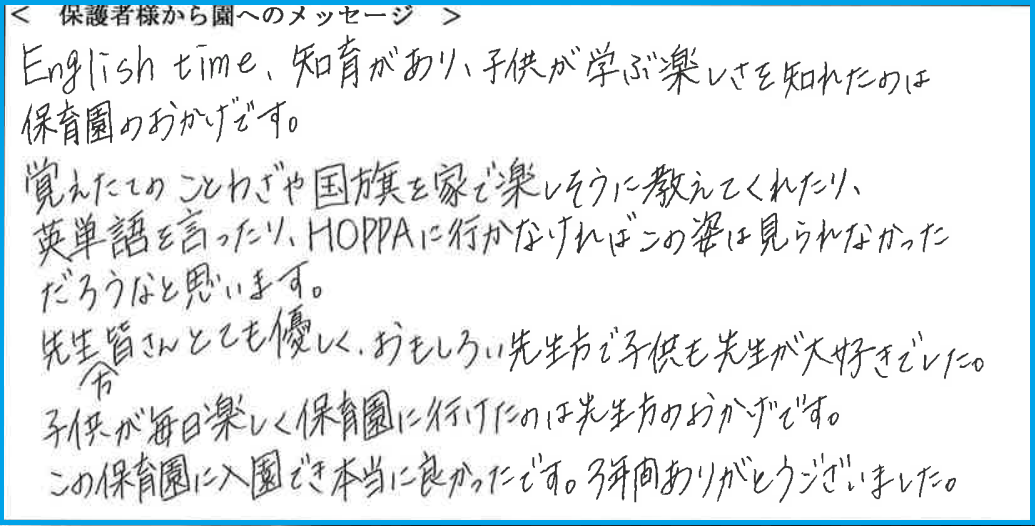 < 保護者様から園へのメッセージ >
English time、知育があり、子供が学ぶ楽しさを知れたのは
保育園のおかげです。
覚えたてのことわざや国旗を家で楽しそうに教えてくれたり、
英単語を言ったり、HOPPAに行かなければこの姿は見られなかった
だろうなと思います。
先生方皆さんとても優しく、おもしろい先生方で子供も先生が大好きでした。
子供が毎日楽しく保育園に行けたのは先生方のおかげです。
この保育園に入園でき本当に良かったです。3年間ありがとうございました。